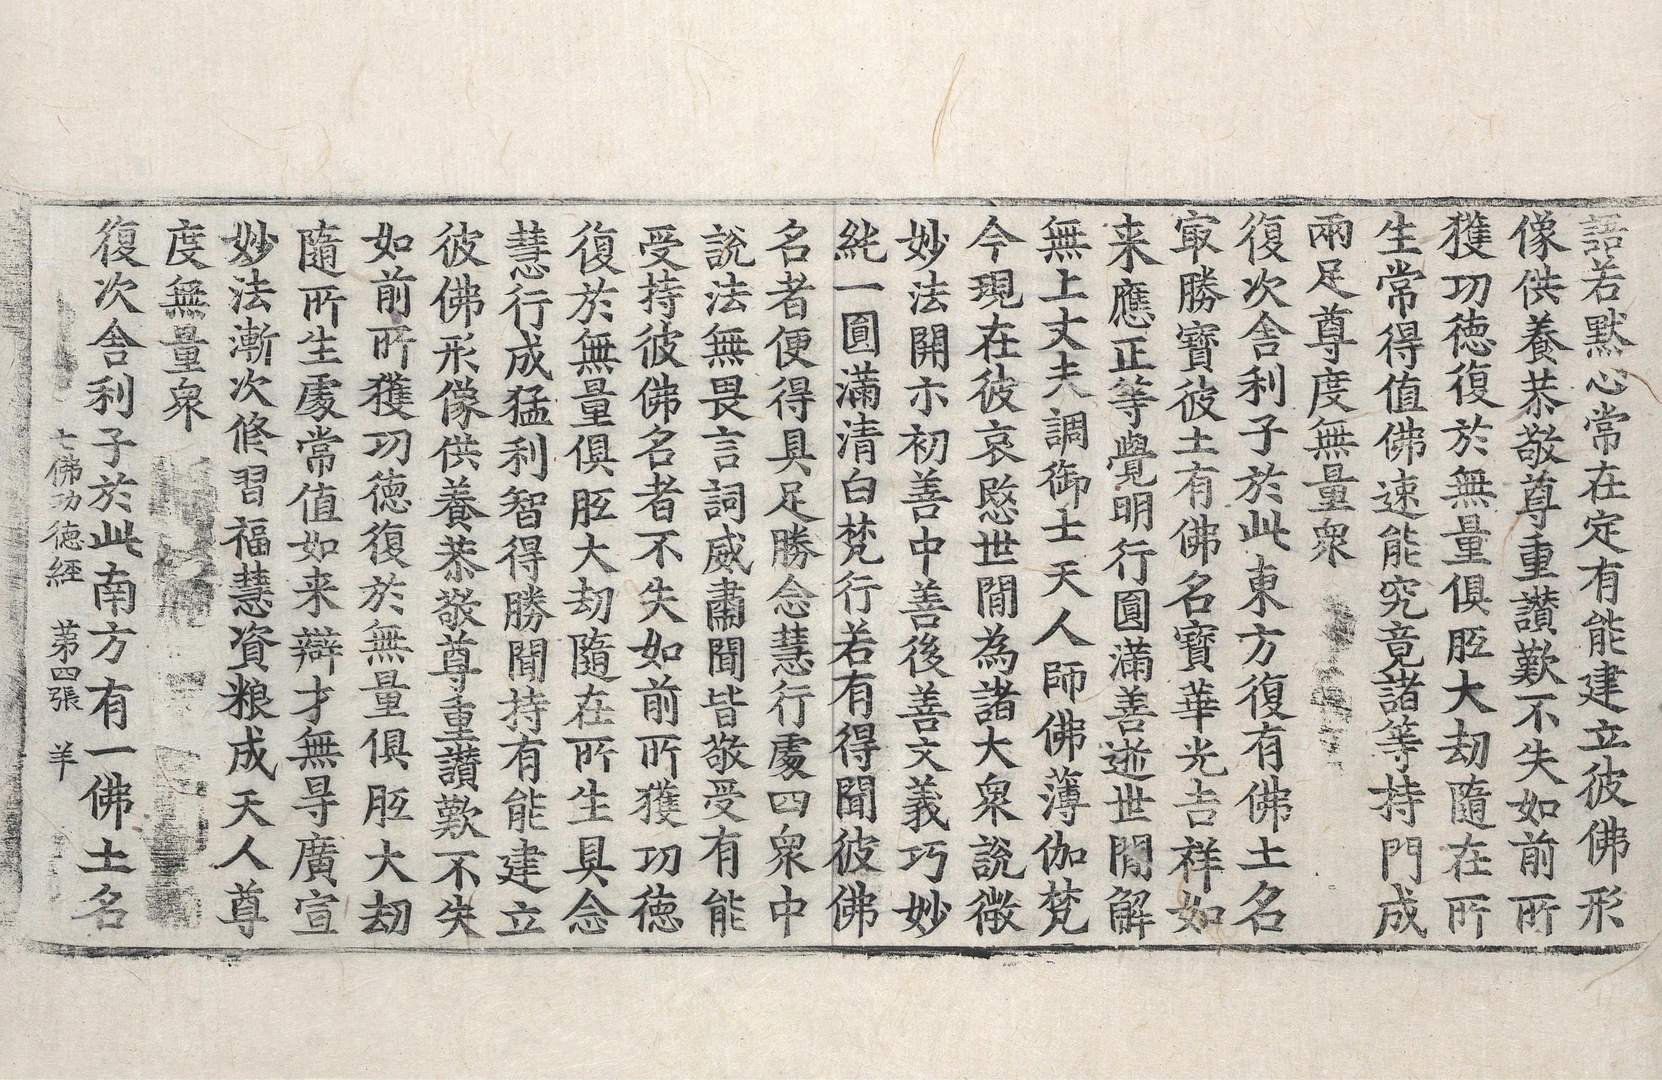 語若默心常在定有能建立彼佛形
像供養恭敬尊重讃歎不失如前所
獲功徳復於無量俱胝大劫隨在所
生常得值佛速能究竟諸等持門成
兩足尊度無量衆
復次舍利子於此東方復有佛土名
㝡勝寶彼土有佛名寶華光吉祥如
来應正等覺明行圓滿善逝世閒解
無上丈夫調御士天人師佛薄伽梵
今現在彼哀愍世閒為諸大衆說微
妙法開示初善中善後善文義巧妙
純一圓滿清白梵行若有得聞彼佛
名者便得具足勝念慧行處四衆中
說法無畏言詞威肅聞皆敬受有能
受持彼佛名者不失如前所獲功徳
復於無量俱胝大劫隨在所生具念
慧行成猛利智得勝聞持有能建立
彼佛形像供養恭敬尊重讃歎不失
如前所獲功徳復於無量俱胝大劫
隨所生處常值如来辯才無㝵廣宣
妙法漸次修習福慧資粮成天人尊
度無量衆
復次舍利子於此南方有一佛土名
七佛功德經 第四張 羊